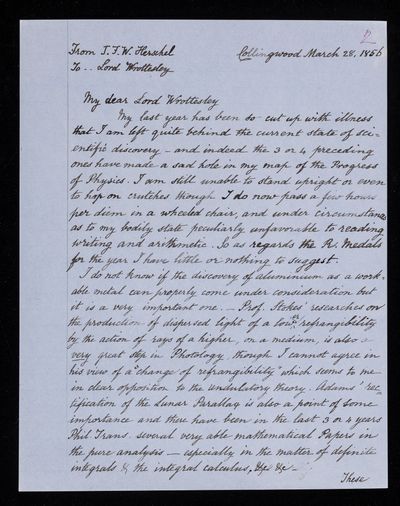 2
From J.F.W. Herschel
Collingwood March 28, 1856
To -- Lord Wrottesley
My dear Lord Wrottesley
My last year has been so cut up with illness
that I am left quite behind the current state of sci-
entific discovery - and indeed the 3 or 4 preceding
ones have made a sad hole in my map of the Progress
of Physics. I am still unable to stand upright or even
to hop on crutches though I do now pass a few hours
per diem in a wheeled chair, and under circumstances
as to my bodily state peculiarly unfavorable to reading
writing and arithmetic. So as regards the R. Medals
for the year I have little or nothing to suggest.
I do not know if the discovery of aluminium as a work-
able metal can properly come under consideration but
it is a very important one. - Prof. Stokes' researches on
the production of dispersed light of a lower refrangibility
by the action of rays of a higher, on a medium, is also a
very great step in Photology, though I cannot agree in
his view of a "change of refrangibility" which seems to me
in clear opposition to the Undulatory theory. Adams' rec-
tification of the Lunar Parallax is also a point of some
importance and there have been in the last 3 or 4 years
Phil Trans. several very able mathematical Papers in
the pure analysis - especially in the matter of definite
integrals & the integral calculus, &c &c -
These